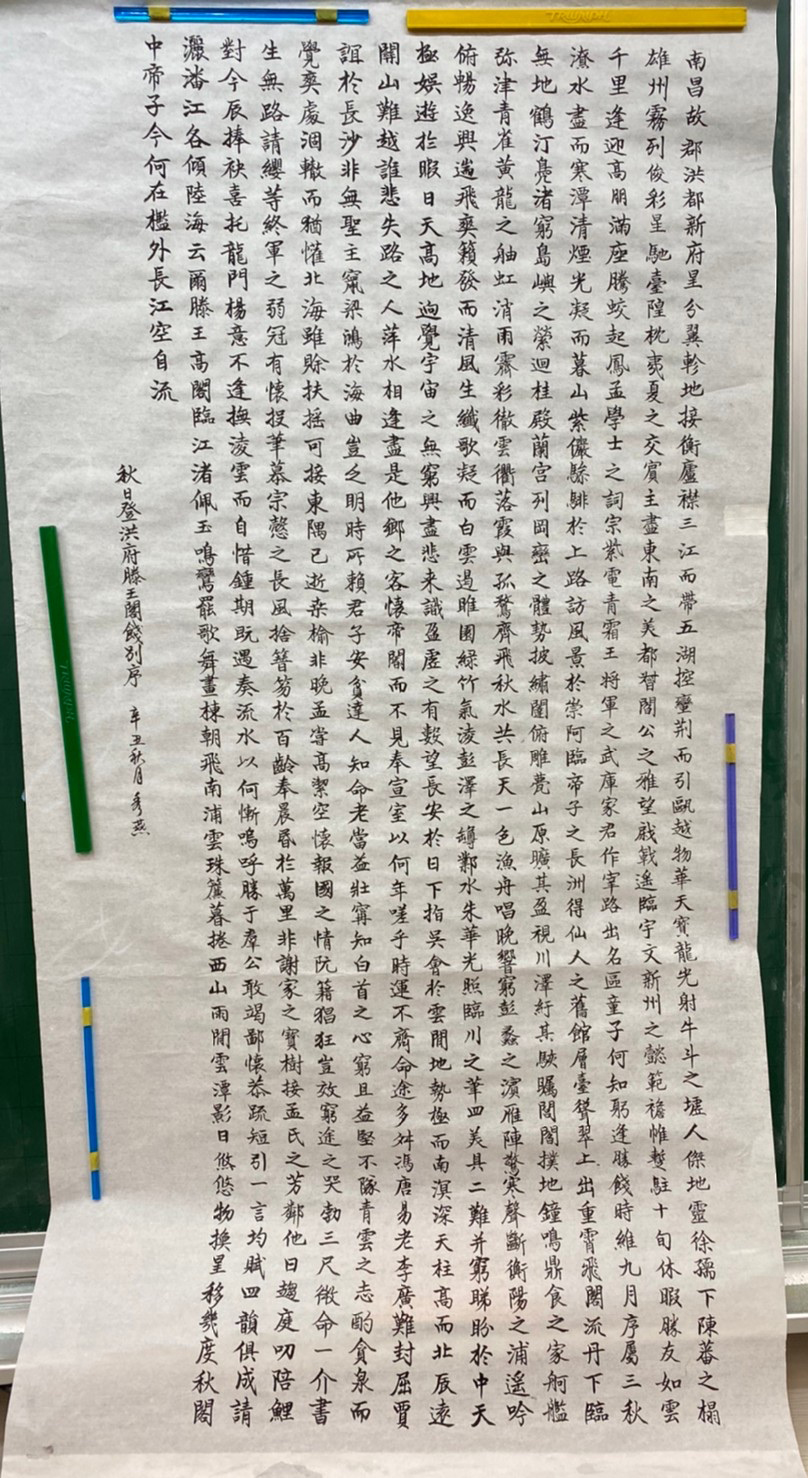 南昌故郡洪都新府星分翼軫地接衡廬襟三江而帶五湖控蠻荊而引甌越物華天寶龍光射牛斗之墟人傑地靈徐孺下陳蕃之榻
雄州霧列俊彩星馳臺隍枕夷夏之交賓主盡東南之美都督閻公之雅望棨戟遙臨宇文新州之懿範襜帷蹔駐十旬休暇勝友如雲
千里逢迎高朋滿座騰蛟起鳳孟學士之詞宗紫電青霜王將軍之武庫家君作宰路出名區童子何知躬逢勝餞時維九月序屬三秋
潦水盡而寒潭清煙光凝而暮山紫儼驂騑於上路訪風景於崇阿臨帝子之長洲得仙人之舊館層臺聳翠上出重霄飛閣流丹下臨
無地鶴汀鳧渚窮島嶼之縈迴桂殿蘭宮列岡巒之體勢披繡闥俯雕甍山原曠其盈視川澤紆其駭矚閭閻撲地鐘鳴鼎食之家舸艦
弥津青雀黃龍之舳虹消雨霽彩徹雲衢落霞與孤鶩齊飛秋水共長天一色漁舟唱晚響窮彭蠡之濱雁陣驚寒聲斷衡陽之浦遙吟
俯暢逸興遄飛爽籟發而清風生纖歌凝而白雲遏睢園綠竹氣淩彭澤之罇鄴水朱華光照臨川之筆四美具二難并窮睇盼於中天
極娛遊於暇日天高地迥覺宇宙之無窮興盡悲来識盈虛之有數望長安於日下指吳會於雲間地勢極而南溟深天柱高而北辰遠
關山難越誰悲失路之人萍水相逢盡是他鄉之客懷帝閽而不見奉宣室以何年嗟乎時運不齊命途多舛馮唐易老李廣難封屈賈
誼於長沙非無聖主竄梁鴻於海曲豈乏明時所賴君子安貧達人知命老當益壯寧知白首之心窮且益堅不墜青雲之志酌貪泉而
覺爽處涸轍而猶懽北海雖賒扶搖可接東隅已逝桑榆非晚孟嘗高潔空懷報國之情阮籍猖狂豈效窮途之哭勃三尺微命一介書
生無路請纓等終軍之弱冠有懷投筆慕宗愨之長風捨簪笏於百齡奉晨昏於萬里非謝家之寶樹接孟氏之芳鄰他日趨庭叨陪鯉
對今辰捧袂喜托龍門楊意不逢撫淩雲而自惜鍾期既遇奏流水以何慚嗚呼勝于羣公敢竭鄙懷恭疏短引一言均賦四韻俱成請
灑潘江各傾陸海云爾滕王高閣臨江渚佩玉鳴鸞罷歌舞畫棟朝飛南浦雲珠簾暮捲西山雨閒雲潭影日悠悠物換星移幾度秋閣
中帝子今何在檻外長江空自流
秋日登洪府滕王閣餞別序 辛丑秋月 秀燕
TRIUMPH
TRIUMPH